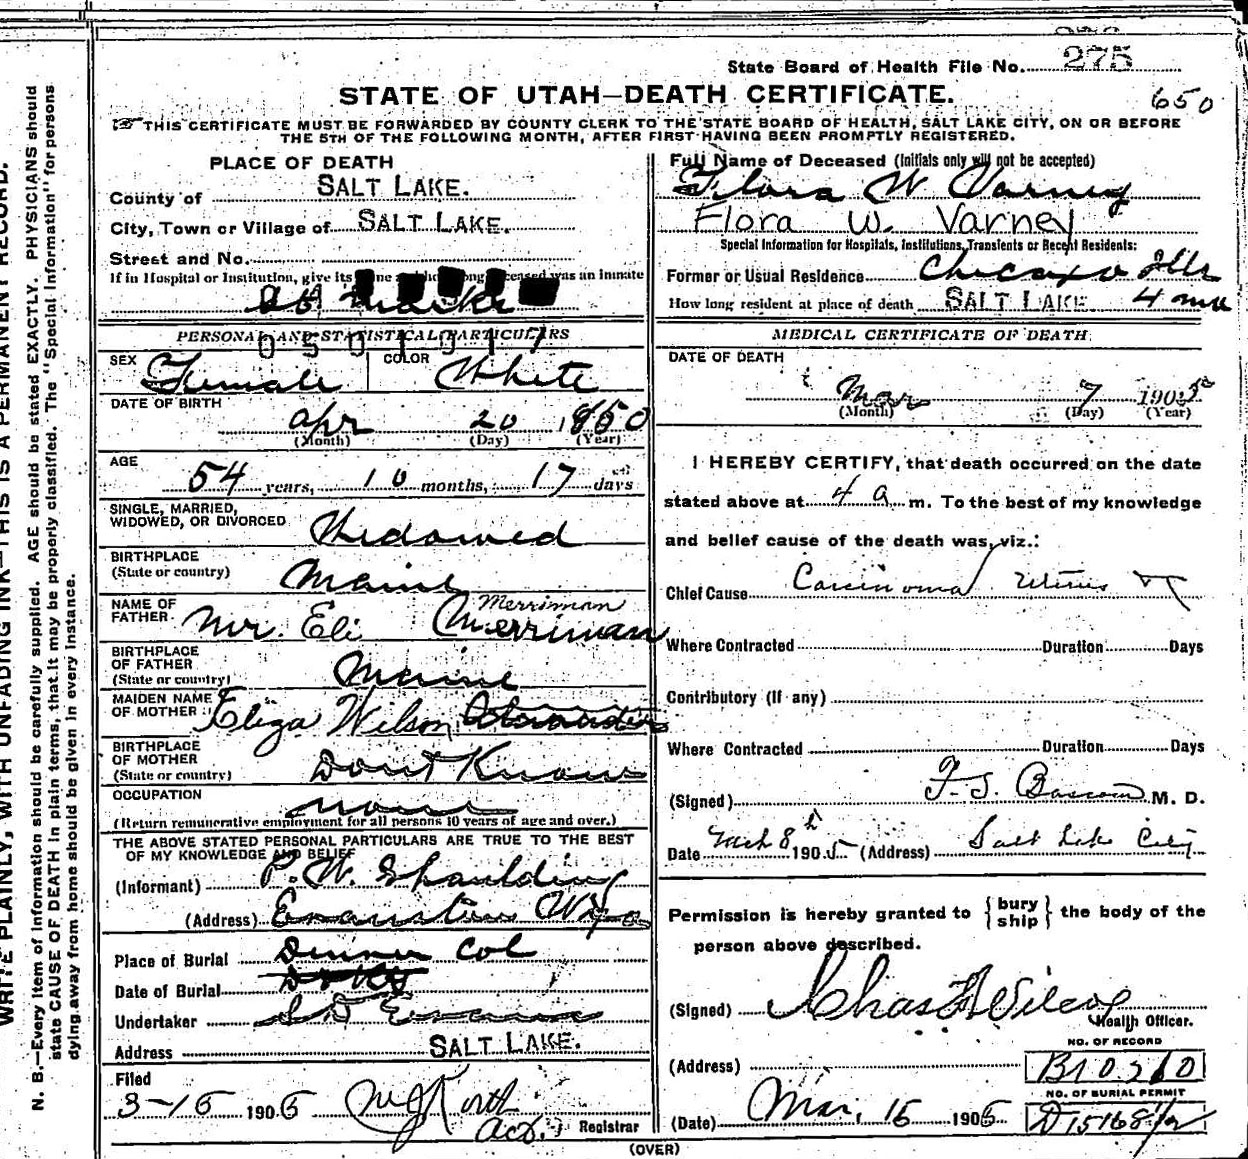 WRITE PLAINLY, WITH UNFADING INK—THIS IS A PERMANENT RECORD.
N. B.—Every item of information should be carefully supplied. AGE should be stated EXACTLY. PHYSICIANS should
state CAUSE OF DEATH in plain terms, that it may be properly classified. The "Special Information" for persons
dying away from home should be given in every instance.
State Board of Health File No. 275
STATE OF UTAH—DEATH CERTIFICATE.
650
THIS CERTIFICATE MUST BE FORWARDED BY COUNTY CLERK TO THE STATE BOARD OF HEALTH, SALT LAKE CITY, ON OR BEFORE
THE 5TH OF THE FOLLOWING MONTH, AFTER FIRST HAVING BEEN PROMPTLY REGISTERED.
PLACE OF DEATH
County of SALT LAKE.
City, Town or Village of SALT LAKE.
Street and No.
If in Hospital or Institution, give its was an inmate
Marks
PERSONAL AND STATISTICAL PARTICULARS
SEX Female COLOR White
DATE OF BIRTH
Apr 20 1850
(Month) (Day) (Year)
AGE
54 years, 10 months, 17 days
SINGLE, MARRIED,
WIDOWED, OR DIVORCED Widowed
BIRTHPLACE
(State or country) Maine
NAME OF
FATHER Mr. Eli Merriman
Merriman
BIRTHPLACE
OF FATHER
(State or country) Maine
MAIDEN NAME
OF MOTHER Eliza Wilson
BIRTHPLACE
OF MOTHER
(State or country) Dont Know
OCCUPATION
None
(Return remunerative employment for all persons 10 years of age and over.)
THE ABOVE STATED PERSONAL PARTICULARS ARE TRUE TO THE BEST
OF MY KNOWLEDGE AND BELIEF
(Informant) P. W. Spaulding
(Address) Evanston Wyo
Place of Burial Denver Col
Date of Burial
Undertaker S D Evans
Address SALT LAKE.
Filed
3-15 1905
Act. Registrar
Full Name of Deceased (Initials only will not be accepted)
Flora W Varney
Flora W. Varney
Special Information for Hospitals, Institutions, Transients or Recent Residents:
Former or Usual Residence Chicago Ills
How long resident at place of death SALT LAKE 4
MEDICAL CERTIFICATE OF DEATH
DATE OF DEATH
Mar 7 1905
(Month) (Day) (Year)
I HEREBY CERTIFY, that death occurred on the date
stated above at 4 a m. To the best of my knowledge
and belief cause of the death was, viz.:
Chief Cause Carcinoma Uterus
Where Contracted Duration Days
Contributory (If any)
Where Contracted Duration Days
(Signed) F. S. Bascom M. D.
Date Mch 8th 1905 (Address) Salt Lake City
Permission is hereby granted to { bury ship } the body of the
person above described.
(Signed) Chas F Wilcox
Health Officer.
NO. OF RECORD
(Address) B10510
NO. OF BURIAL PERMIT
(Date) Mar. 15 1905 D 15168 1/2
(OVER)